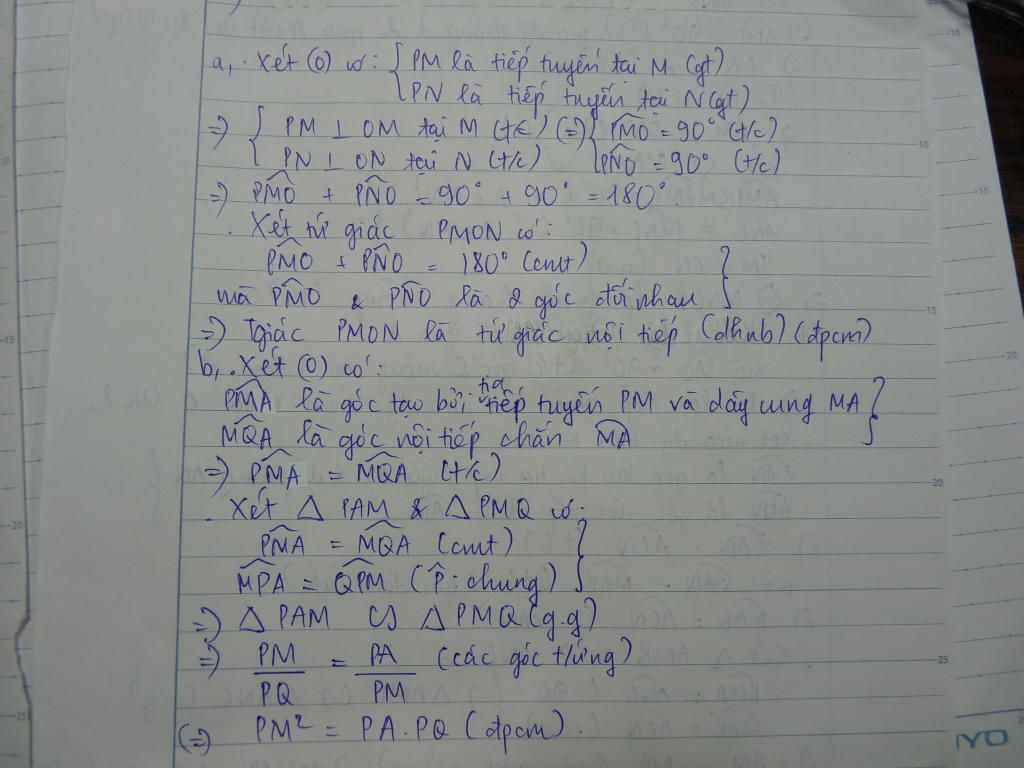 a, . Xét (O) có: { PM là tiếp tuyến tại M (gt)
PN là tiếp tuyến tại N (gt)
=> { PM ⊥ OM tại M (t/c) (=) { PMO = 90° (t/c)
PN ⊥ ON tại N (t/c) PNO = 90° (t/c)
=> PMO + PNO = 90° + 90° = 180°
. Xét tứ giác PMON có:
PMO + PNO = 180° (cmt)
mà PMO & PNO là 2 góc đối nhau }
=> Tgiác PMON là tứ giác nội tiếp (dhnb) (đpcm)
b, . Xét (O) có:
PMA là góc tạo bởi tia tiếp tuyến PM và dây cung MA }
MQA là góc nội tiếp chắn MA
=> PMA = MQA (t/c)
. Xét Δ PAM & Δ PMQ có:
PMA = MQA (cmt) }
MPA = QPM (P : chung)
=> Δ PAM ∽ Δ PMQ (g.g)
=> PM/PQ = PA/PM (các góc t/ứng)
(=) PM² = PA.PQ (đpcm).